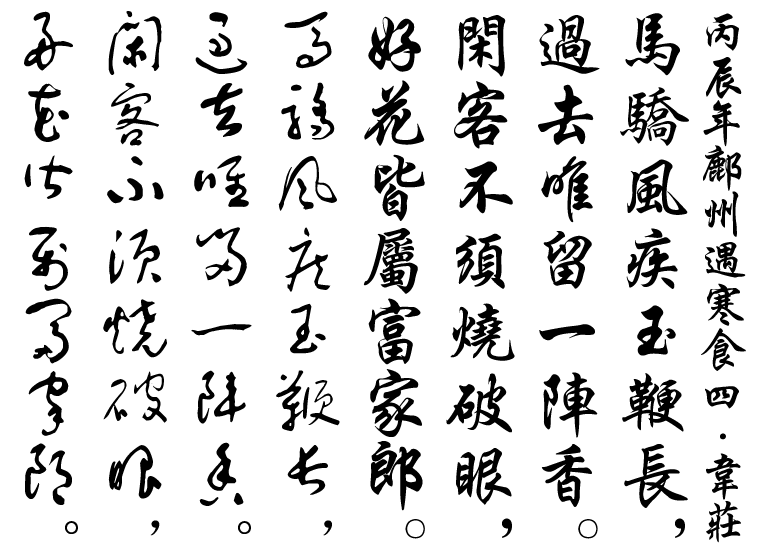 丙辰年鄜州遇寒食四·韋莊
馬驕風疾玉鞭長，
過去唯留一陣香。
閑客不須燒破眼，
好花皆屬富家郎。
馬驕風疾玉鞭長，
過去唯留一陣香。
閑客不須燒破眼，
好花皆屬富家郎。